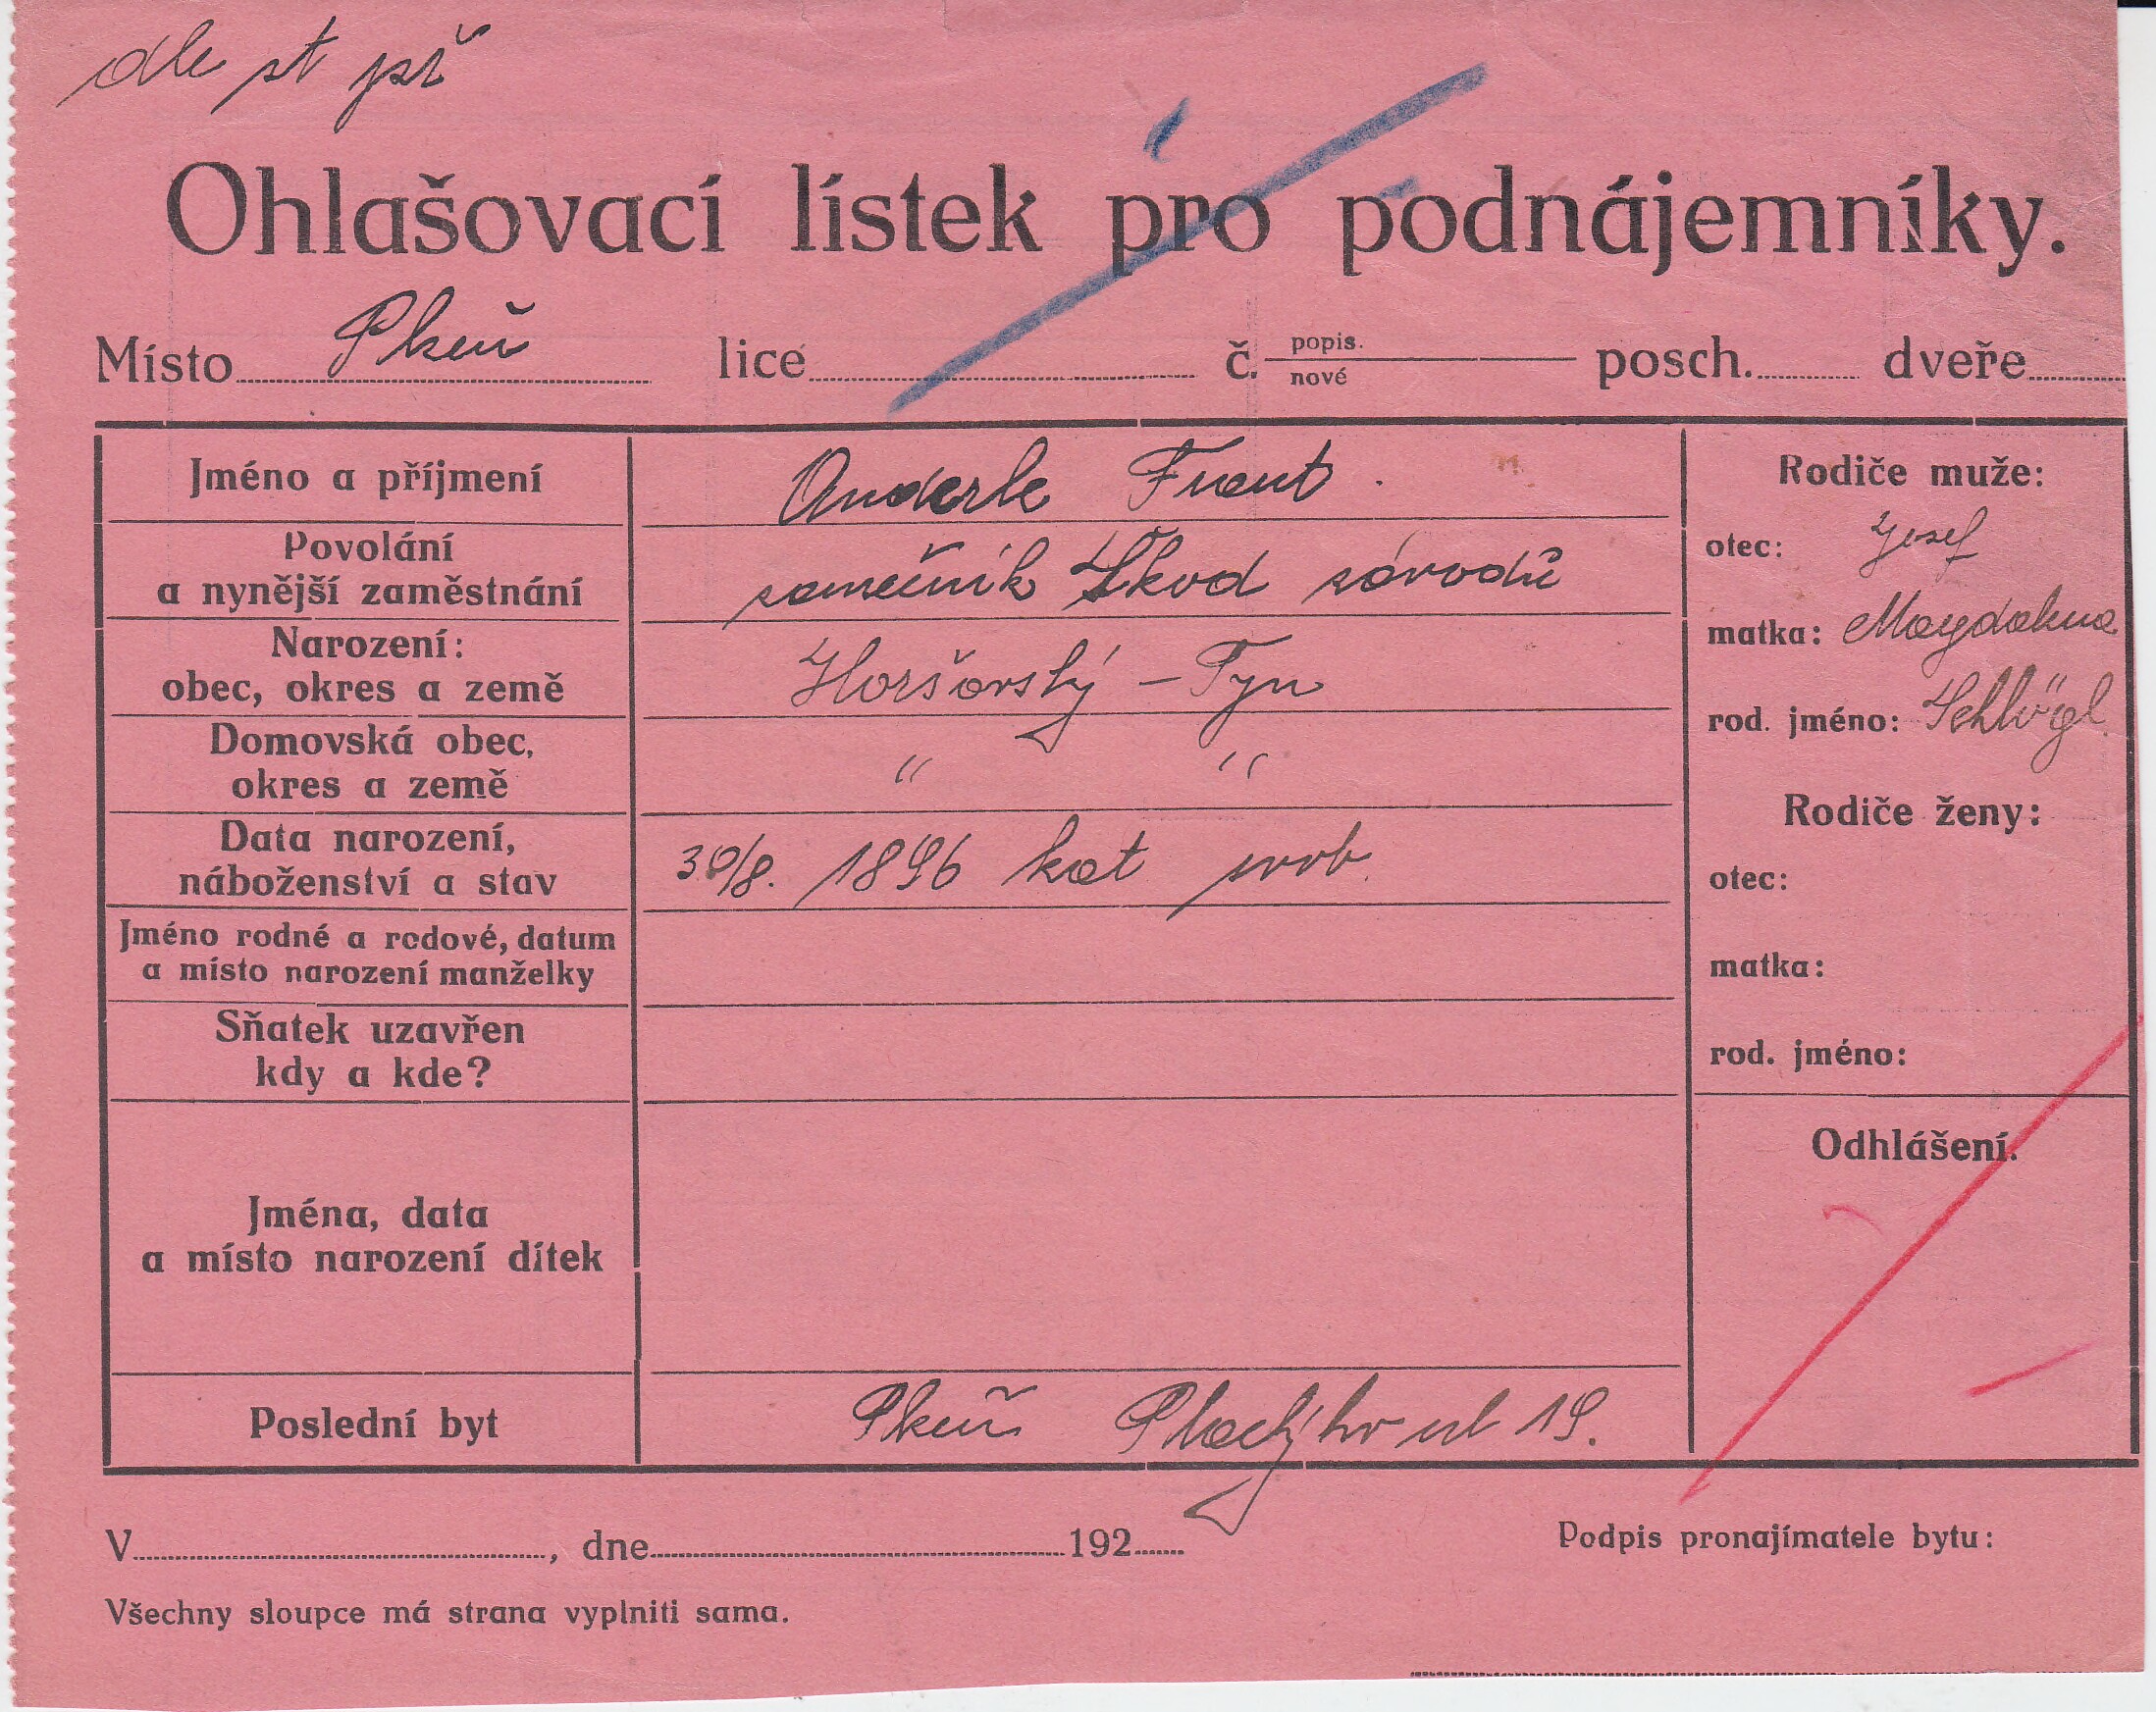 dle st př
Ohlašovací lístek pro podnájemníky.
Místo Plzeň lice č. popis. nové posch. dveře
Jméno a příjmení Anderle Frant.
Povolání a nynější zaměstnání zámečník Škod závodů
Narození: obec, okres a země Horšovský – Týn
Domovská obec, okres a země " "
Data narození, náboženství a stav 30/8. 1896 kat svob.
Jméno rodné a rodové, datum a místo narození manželky
Sňatek uzavřen kdy a kde?
Jména, data a místo narození dítek
Poslední byt Plzeň Plachého ul 19.
Rodiče muže:
otec: Josef
matka: Magdalena
rod. jméno: Schlögl
Rodiče ženy:
otec:
matka:
rod. jméno:
Odhlášení.
V , dne 192
Podpis pronajímatele bytu:
Všechny sloupce má strana vyplniti sama.